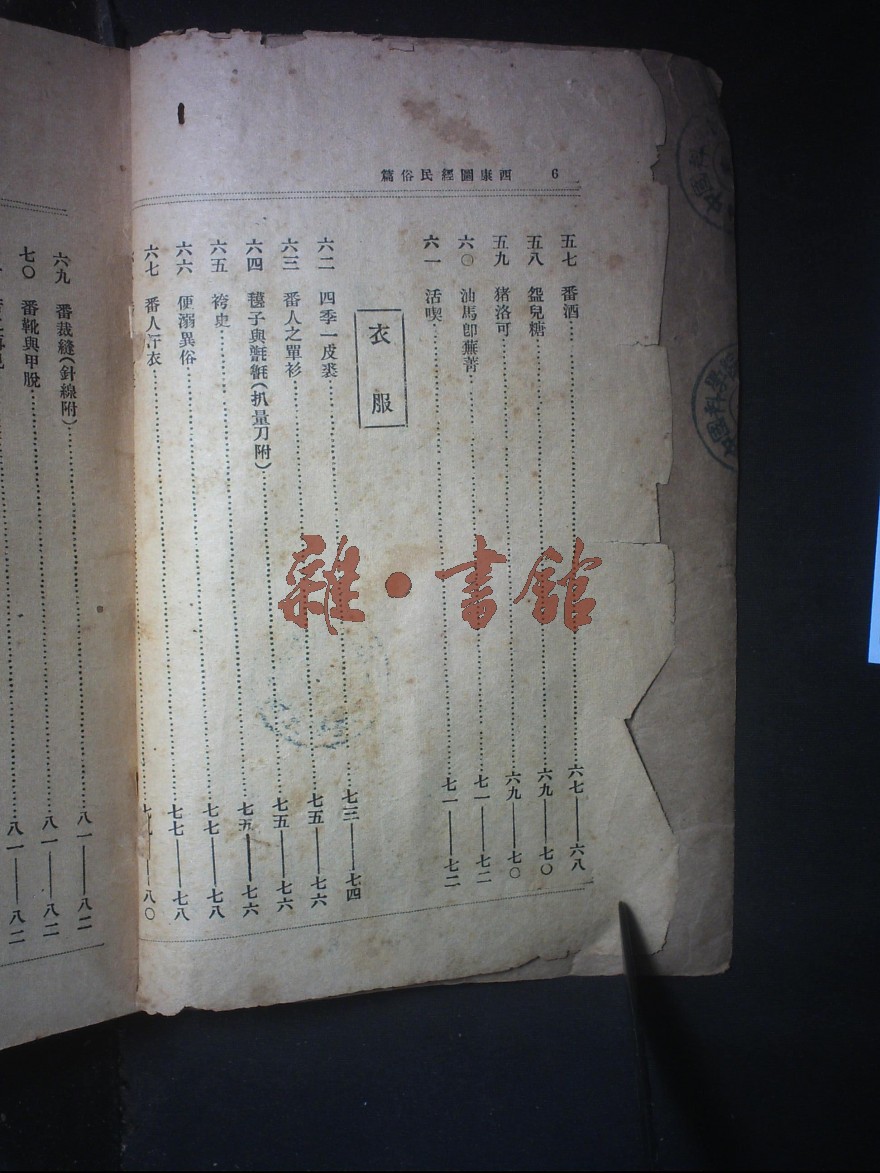 西康圖經民俗篇 6
五七 番酒……六七——六八
五八 盌兒糖……六九——七〇
五九 猪洛可……六九——七〇
六〇 油馬卽蕪菁……七一——七二
六一 活喫……七一——七二
衣服
六二 四季一皮裘……七三——七四
六三 番人之單衫……七五——七六
六四 毪子與氆氇(扒量刀附)……七五——七六
六五 袴史……七七——七八
六六 便溺異俗……七七——七八
六七 番人汗衣……七九——八〇
六九 番裁縫(針線附)……八一——八二
七〇 番靴與甲脫……八一——八二
八一——八二
雜·書館